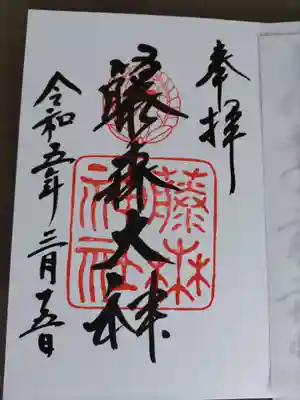 奉拝
藤森大神
令和五年三月十五日
藤森
神社